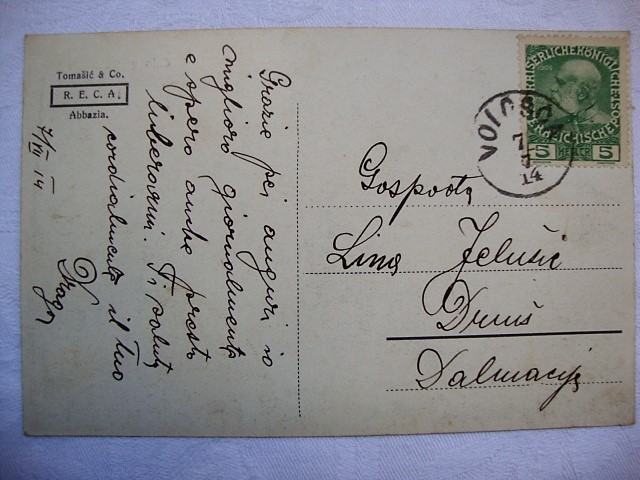 Tomašić & Co.
R. E. C. A.
Abbazia.
7/VII 14
Grazie pei auguri io
miglioro giornalmente
e spero anche presto
liberarmi. Ti saluta
cordialmente il tuo
Drago
KAISERLICHE KÖNIGLICHE
5 HELLER 5
VOLOSCA
7
7
14
Gospođa
Lina Jelušić
Drniš
Dalmacija